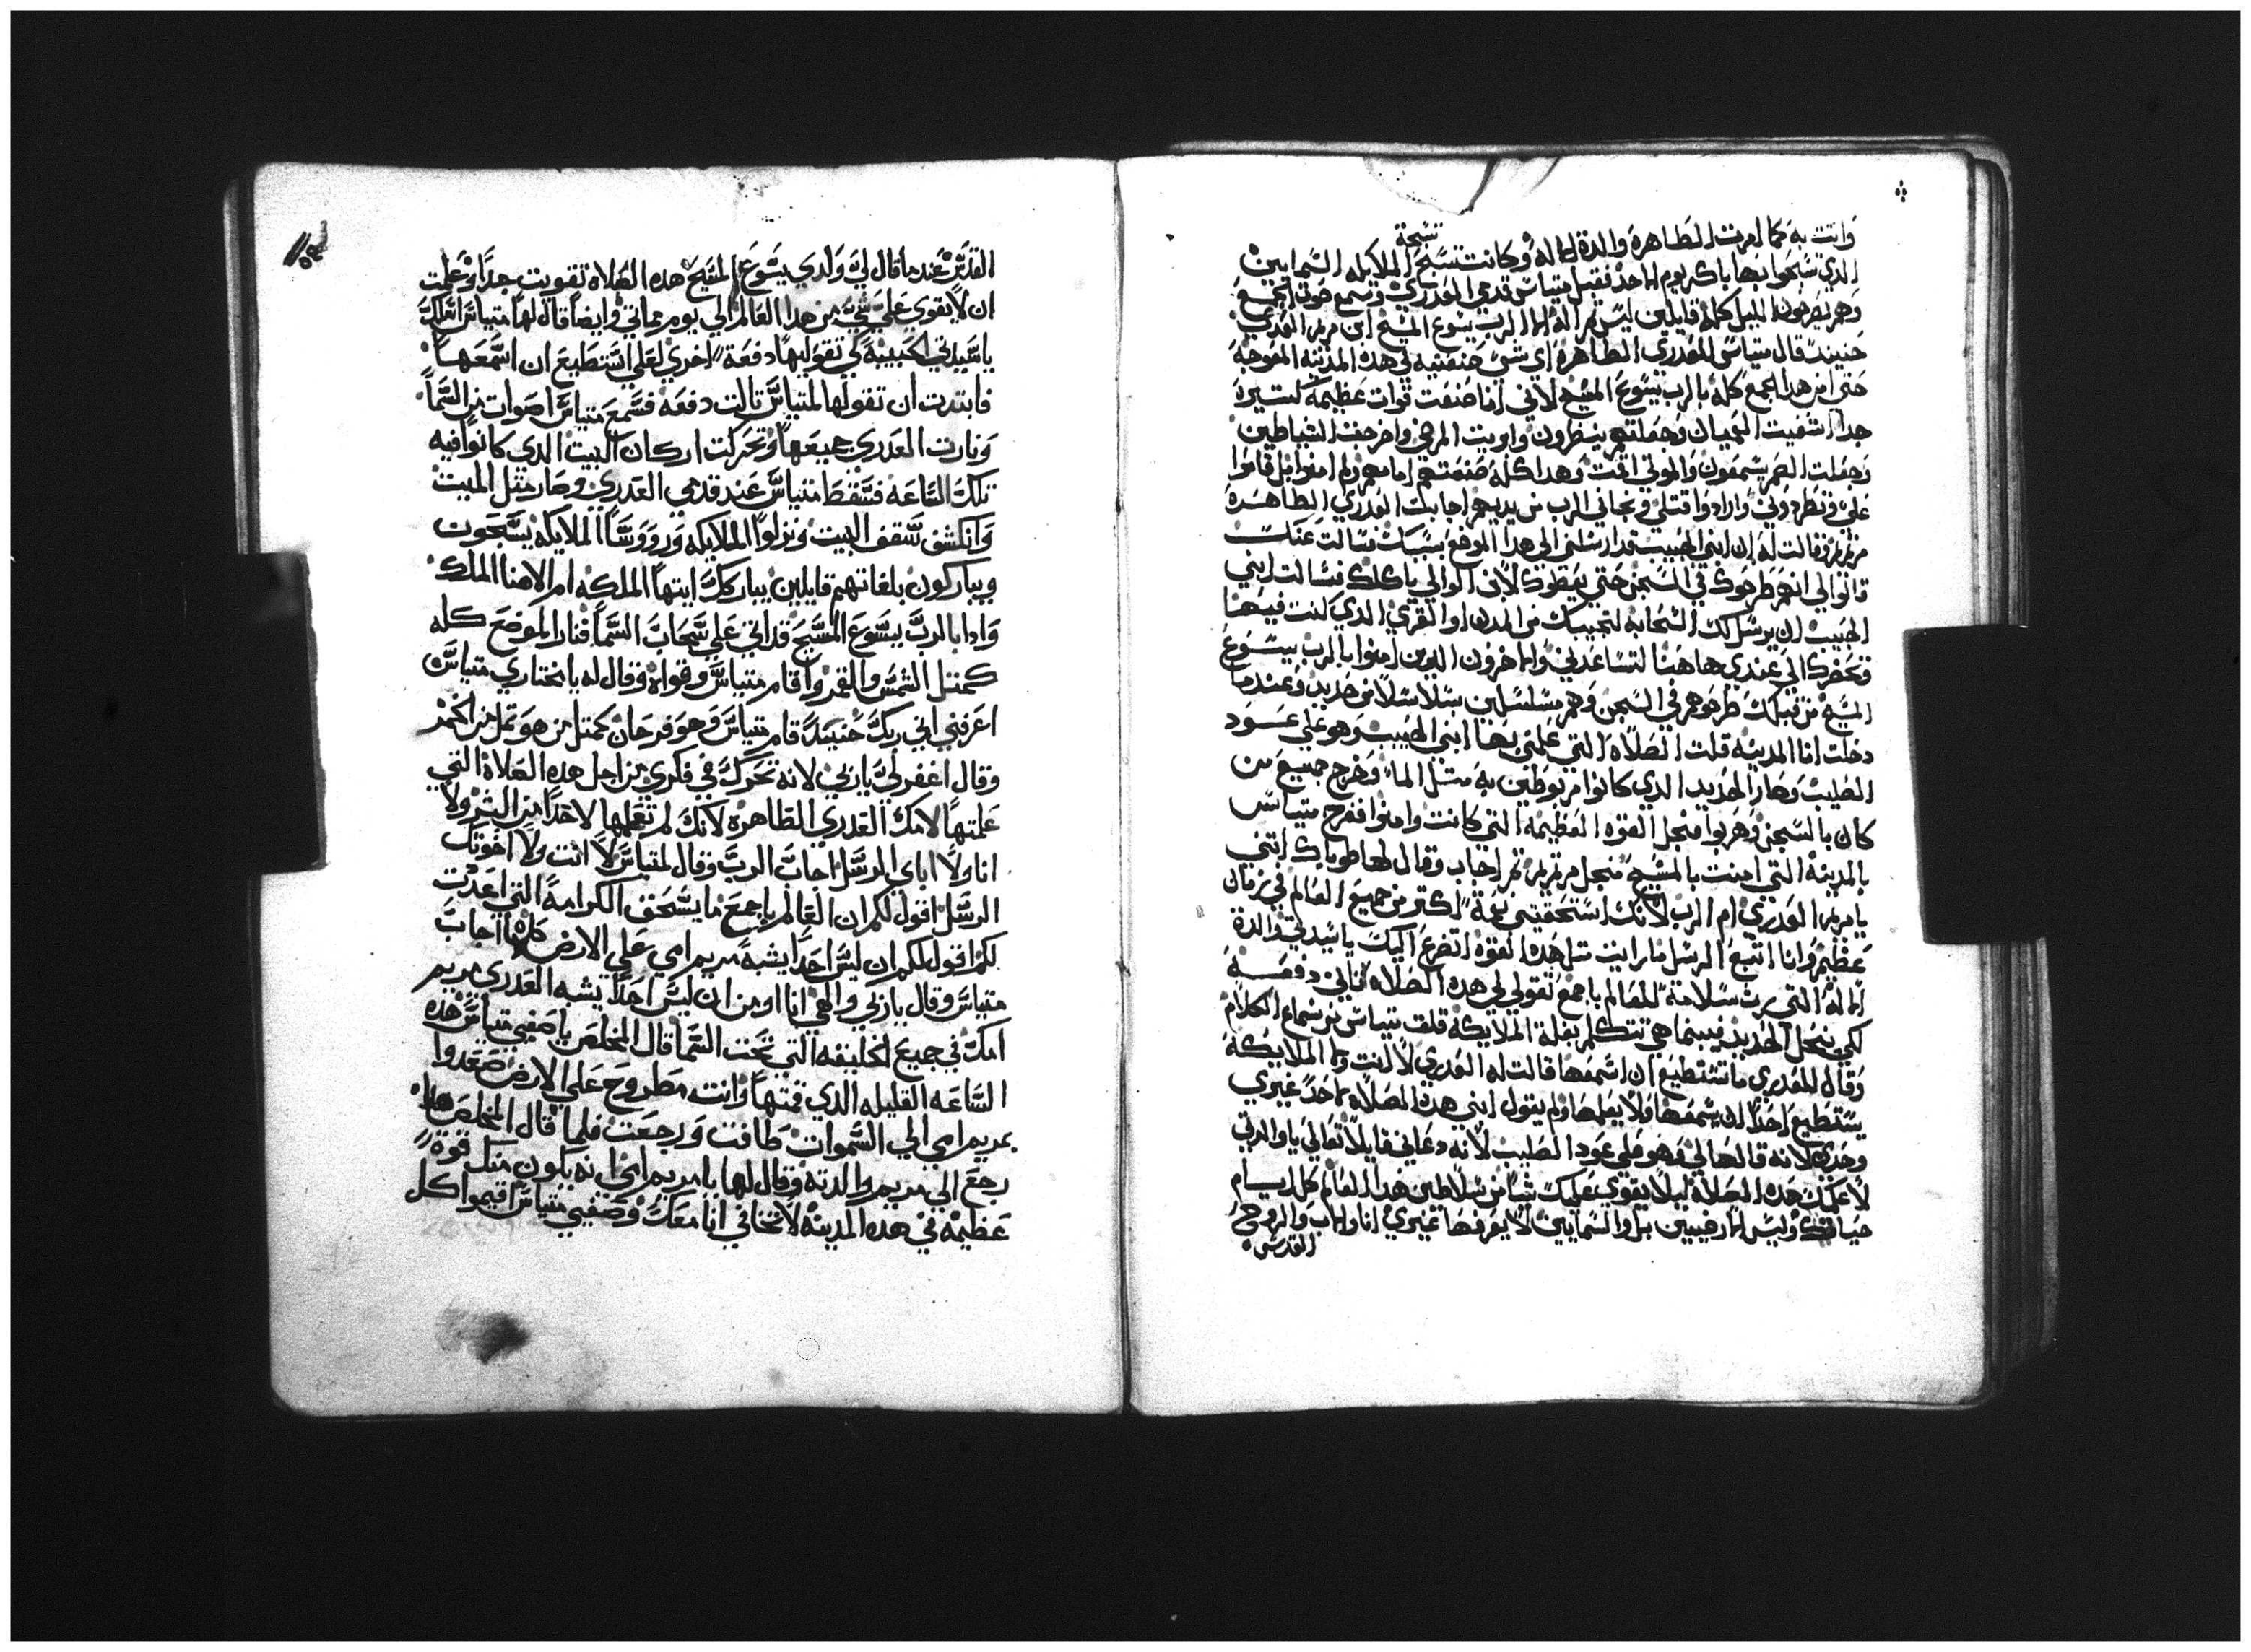 وانت به كما امرت الطاهرة والدة الاله وكانت تسبح الملايكه السمايين
تسبحة
الدي سبحوا بها باكر يوم الاحد فقبل متياس قدمي العدري وسمع صوت الجمع
وهم يصرخون الليل كله قايلين ليس اله الا الرب يسوع المسيح ابن مريم العدري
حنيند قال متياس للعدري الطاهرة اي شي صنعتيه في هده المدينه المعوجه
حتى امن هدا الجمع كله بالرب يسوع المسيح لاني انا صنعت قوات عظيمة كتيرة
جدا اشفيت العميان وجعلتهم ينظرون وابريت المرضي واخرجت الشياطين
وجعلت الصم يسمعون والموتي اقمت وهدا كله صنعته امامهم ولم امنوا بل قاموا
علي وطردوني وارادوا قتلي ونجاني الرب من يديهم اجابت العدري الطاهرة
مريم وقالت له ان ابني الحبيب قد ارسلني الى هدا الموضع بسببك فسالت عنك
قالوا لي انهم طرحوك في السجن حتي يعطوك لابن الوالي ياكلك فسالت ابني
الحبيب ان يرسل لك السحابه لتجيبك من المدن او القري الدي كنت فيها
وتحضرك الى عندي هاهنا لتساعدني والاخرون الدين امنوا بالرب يسوع
المسيح من قبلك طرحوهم في السجن وهم مسلسلين بسلاسل من حديد وعندما
دخلت انا المدينه قلت الصلاه التي علمني بها ابني الحبيب وهو علي عود
الصليب وصار الحديد الدي كانوا مربوطين به متل الما وخرج جميع من
كان بالسجن وهربوا من اجل القوه العظيمه التي كانت وامنوا ففرح متياس
بالمدينه التي امنت بالمسيح من اجل مريم تم اجاب وقال لها طوباك انتي
يا مريم العدري ام الرب لانك استحقيتي نعمة اكتر من جميع العالم في زمان
عظيم وانا اتبع الرسل ما رايت متل هده القوة اتضرع اليك يا سيدتي والدة
الاله التي سلامة للعالم باجمع تقولي لي هده الصلاه تاني دفعه
لكي ينحل الحديد فبينما هي تتكلم بلغة الملايكه قلق متياس من سماع الكلام
وقال للعدري ما تستطيع ان اسمعها قالت له العدري لا انت ولا الملايكه
يستطيع احدا ان يسمعها ولا يعلمها ولم يقول ابني هدة الصلاه لاحد غيري
وحدي لانه قالها لي وهو علي عود الصليب لانه دعاني قايلا تعالي يا والدتي
لاعلمك هده الصلاه ليلا يقوي عليك شيا من سلاطين هدا العالم كل ايام
حياتك وليس الارضيين بل والسمايين لا يعرفها غيري انا والاب والروح
القدس
القدس عندما قال لي ولدي يسوع المسيح هده الصلاه تقويت جدا وعلمت
ان لا يقوي علي شي من هدا العالم الي يوم مماتي وايضا قال لها متياس اسالك
يا سيدتي الحبيبة كي تقوليها دفعة اخري لعلي استطيع ان اسمعها
فابتدت ان تقولها لمتياس تالت دفعه فسمع متياس اصوات من السما
ونارت العدري جميعها وتحركت اركان البيت الدي كانوا فيه
تلك الساعه فسقط متياس عند قدمي العدري وصار متل الميت
وانكشف سقف البيت ونزلوا الملايكه وروسا الملايكه يسبحون
ويباركون بلغاتهم قايلين يباركك ايتها الملكه ام الاهنا الملك
وادا بالرب يسوع المسيح قد اتي علي سحاب السما فنار الموضع كله
كمتل الشمس والقمر واقام متياس وقواه وقال له يا مختاري متياس
اعرفني اني ربك حنيند قام متياس وهو فرحان كمتل من هو تمل من الخمر
وقال اغفر لي يا ربي لانه تحرك في فكري من اجل هده الصلاة التي
علمتها لامك العدري الطاهرة لانك لم تعلمها لاحدا من البشر ولا
انا ولا اباي الرسل اجاب الرب وقال لمتياس لا انت ولا اخوتك
الرسل اقول لكم ان العالم باجمع ما يستحق الكرامة التي اعدت
لكم اقول لكم ان ليس احدا يشبه مريم امي علي الارض كلها اجاب
متياس وقال يا ربي والهي انا اومن ان ليس احدا يشبه العدري مريم
امك في جميع الخليقه التي تحت السما قال المخلص يا صفيي متياس هده
الساعه القليله الدي قمتها وانت مطروح علي الارض صعدوا
بمريم امي الي السموات طافت ورجعت فلما قال المخلص هدا
رجع الي مريم والدته وقال لها يا مريم امي انه يكون منك قوة
عظيمه في هده المدينه لا تخافي انا معك وصفيي متياس اقيموا كل